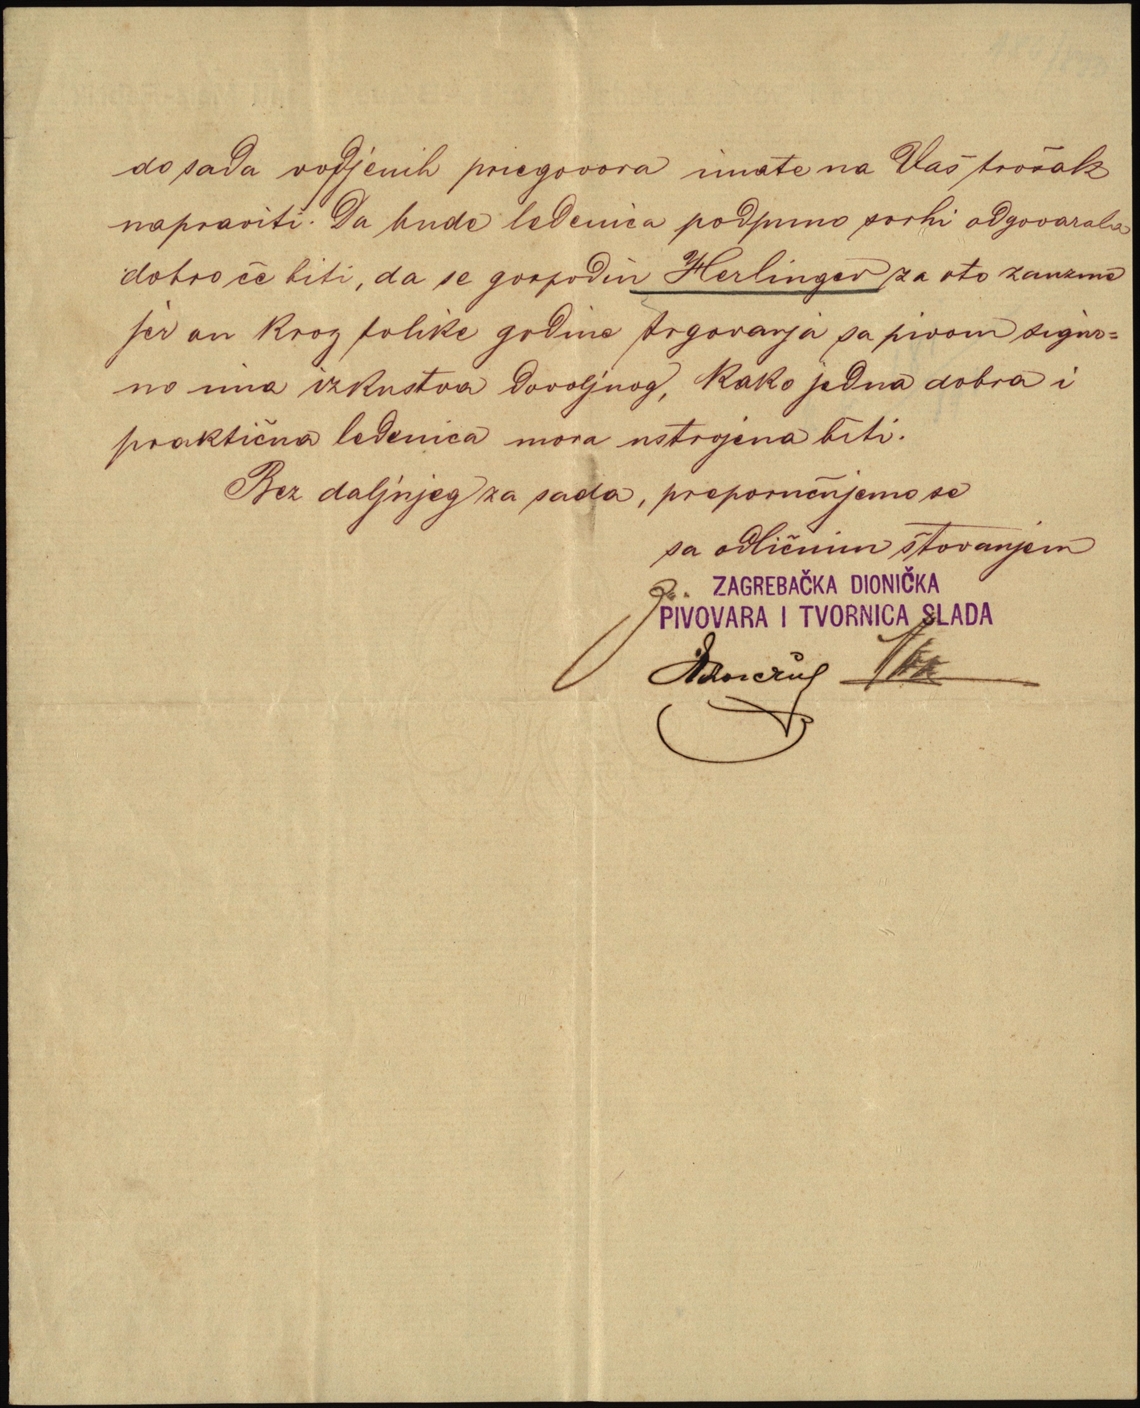 do sada vodjenih priegovora imate na Vaš trošak
napraviti. Da bude ledenica podpuno svrhi odgovarala
dobro će biti, da se gospodin Herlinger za oto zauzme
jer on kroz tolike godine trgovanja sa pivom sigur=
no ima izkustva dovoljnog, kako jedna dobra i
praktična ledenica mora ustrojena biti.
Bez daljnjeg za sada, preporučujemo se
sa odličnim štovanjem
ZAGREBAČKA DIONIČKA
PIVOVARA I TVORNICA SLADA